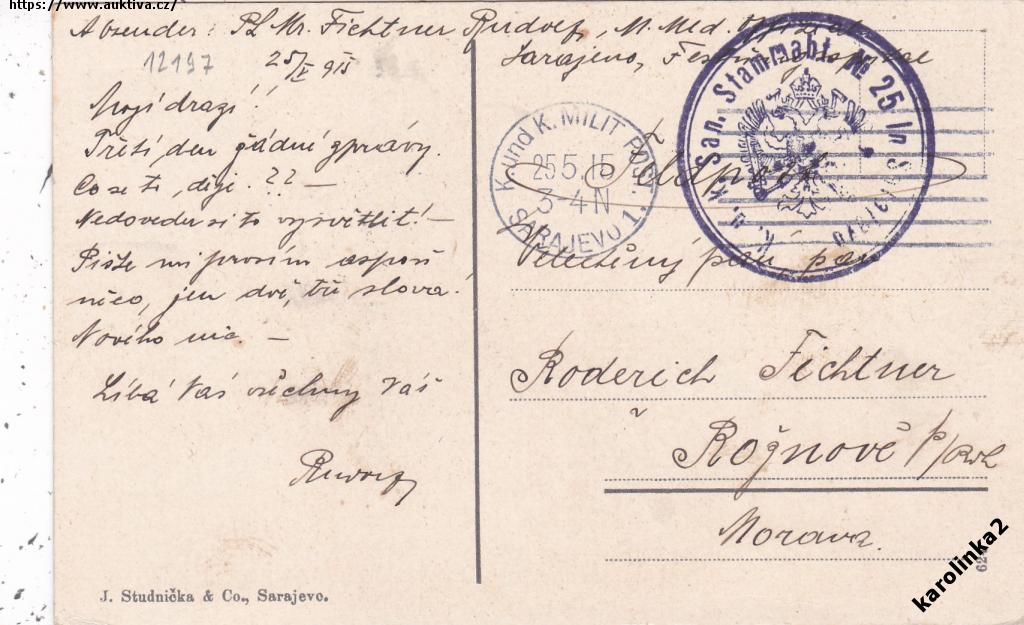 https://www.auktiva.cz/
Absender: Ph Mr. Fichtner Rudolf, M. Med.
Sarajevo,
12197
25/V 915
Moji drazí!
Třetí den žádné zprávy.
Co se ti děje ?? —
Nedovedu si to vysvětlit! —
Pište mi prosím aspoň
něco, jen dvě, tři slova!
Nového nic. —
Líbá Vás všechny Váš
Rudolf
J. Studnička & Co., Sarajevo.
K. und K. MILIT. POST
25 5 15
3-4 N
SARAJEVO 1.
K. u. K. San. Stammabt. № 25 in Sarajevo
Feldpost
Velectěný pán, pan
Roderich Fichtner
v Rožnově p/Rad
Morava.
karolinka2